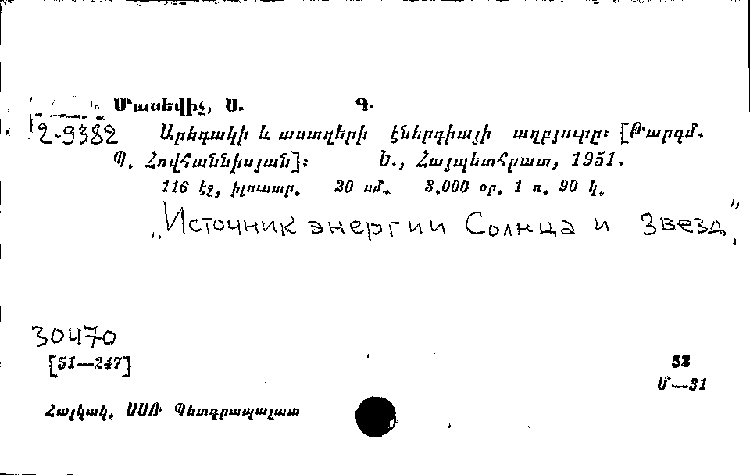 Մասեվիչ, Ա. Գ.
Г2-9382 Արեգակի և աստղերի էներգիայի աղբյուրը: [Թարգմ.
Պ. Հովհաննիսյան]: Ե., Հայպետհրատ, 1951.
116 էջ, իլուստր. 20 սմ. 3.000 օր. 1 ռ. 90 կ.
„Источник энергии Солнца и Звезд"
30470
[51—247]
52
Մ—31
Հայկակ. ՍՍՌ Պետգրապալատ